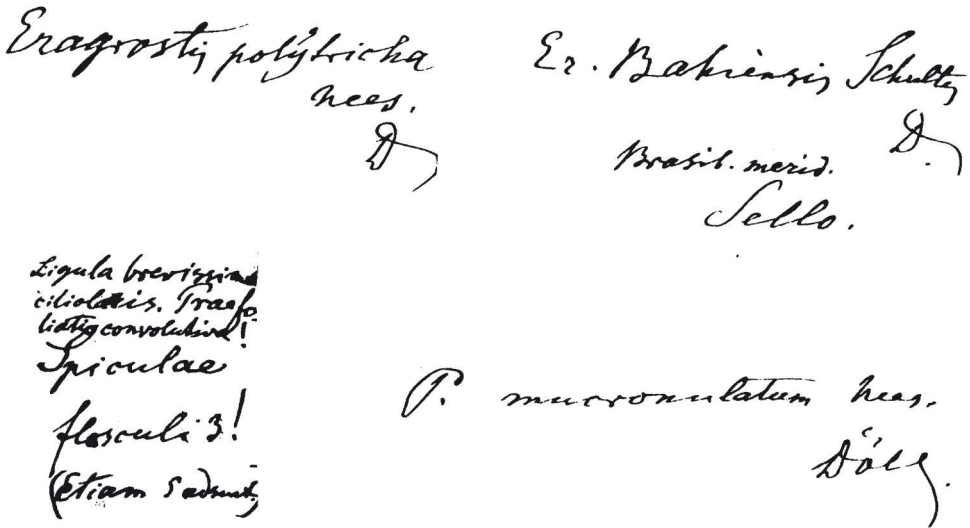 Eragrostis polytricha
Nees.
D
Er. Bahiensis Schultz
D.
Brasil. merid.
Sello.
Ligula brevissima
ciliolatis. Praefo
liatio convolutiva!
Spiculae
flosculi 3!
(Etiam 5 adsunt)
P. mucronulatum Nees.
Döll.